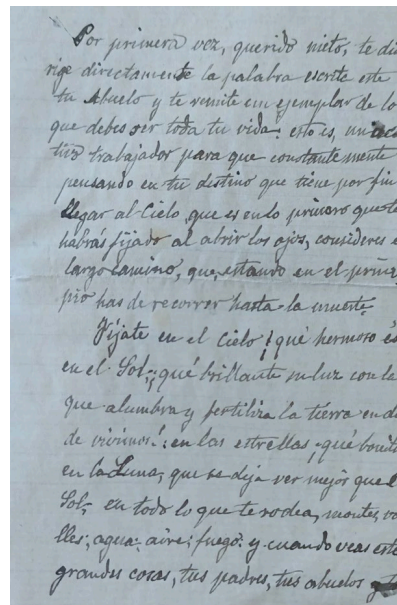 Por primera vez, querido nieto, te di
rige directamente la palabra escrita este
tu Abuelo y te remite un ejemplar de lo
que debes ser toda tu vida: esto es, un
trabajador para que constantemente
pensando en tu destino que tiene por fin
llegar al Cielo, que es en lo primero que te
habrás fijado al abrir los ojos, consideres e
largo camino, que, estando en el princi
pio has de recorrer hasta la muerte.
Fíjate en el Cielo ¡qué hermoso es
en el Sol; ¡qué brillante su luz con la
que alumbra y fertiliza la tierra en do
de vivimos!: en las estrellas, ¡qué bonita
en la Luna, que se deja ver mejor que el
Sol; en todo lo que te rodea, montes, va
lles; agua; aire; fuego: y cuando veas esta
grandes cosas, tus padres, tus abuelos